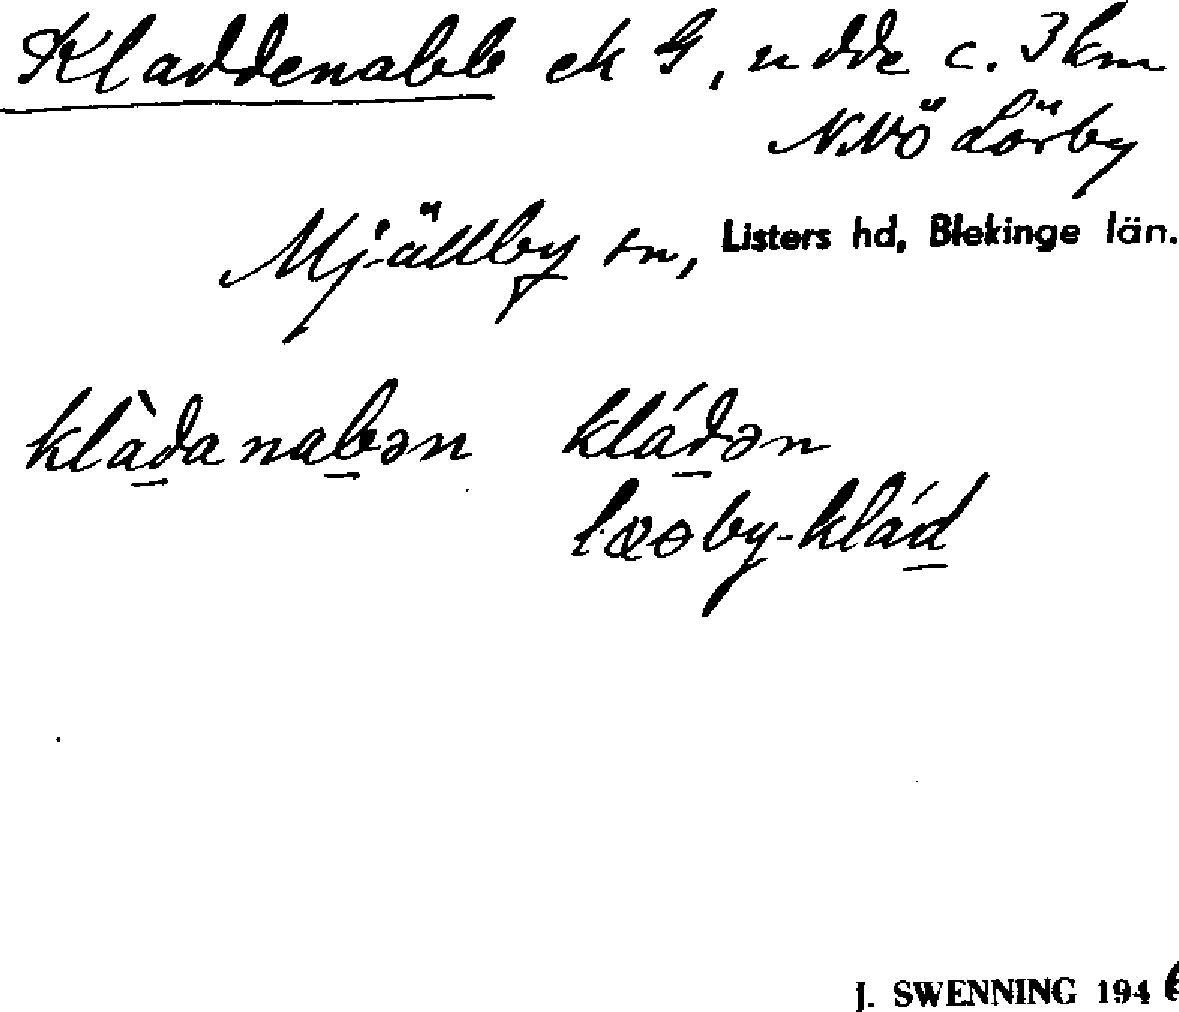 Kladdenabb ek G, udde c. 3 km
NNÖ Lörby
Mjällby sn, Listers hd, Blekinge län.
klàd̲anab̲ən klád̲ən
læoby-klád̲
J. SWENNING 1946